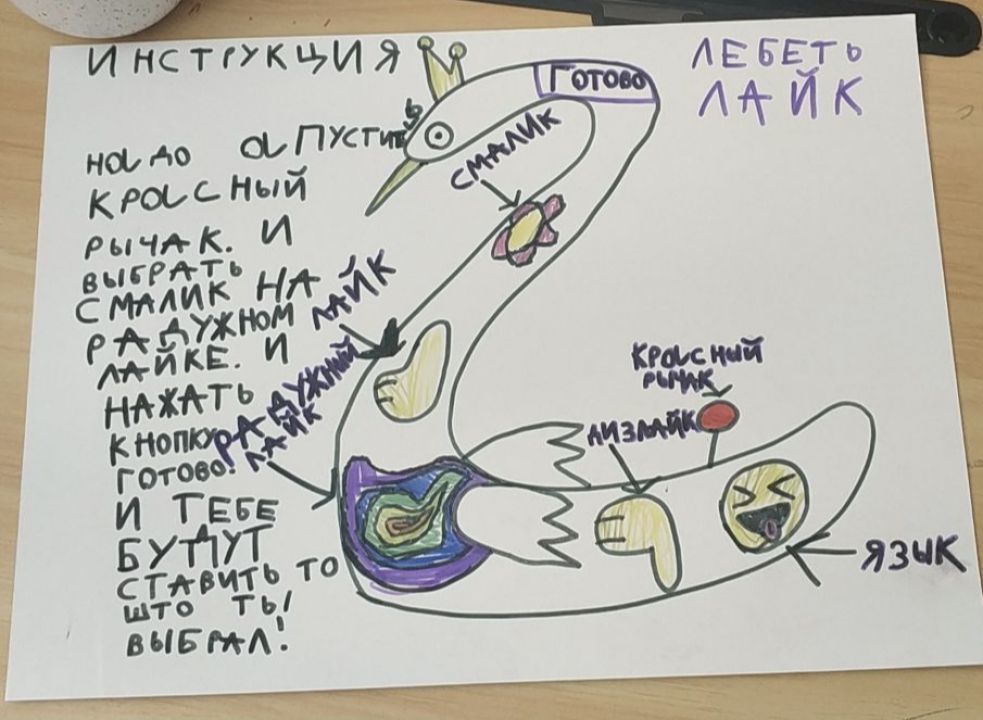 ИНСТРУКЦИЯ
НАДО ОПУСТИТЬ
КРАСНЫЙ
РЫЧАК. И
ВЫБРАТЬ
СМАЛИК НА
РАДУЖНОМ
ЛАЙКЕ. И
НАЖАТЬ
КНОПКУ
ГОТОВО!
И ТЕБЕ
БУДУТ
СТАВИТЬ ТО
ШТО ТЫ
ВЫБРАЛ!
ЛЕБЕТЬ
ЛАЙК
ГОТОВО
СМАЛИК
ЛАЙК
РАДУЖНЫЙ
ЛАЙК
КРАСНЫЙ
РЫЧАК
ДИЗЛАЙК
ЯЗЫК